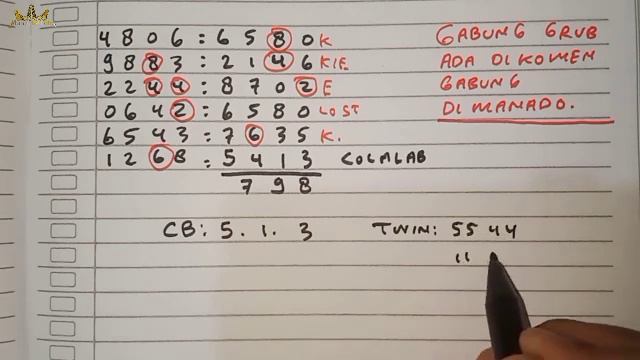 4806 : 6580 K
9883 : 2146 KIE
2244 : 8702 E
0642 : 6580 LOST
6543 : 7635 K.
1268 : 5413 COLALAB
798
GABUNG GRUB
ADA DI KOMEN
GABUNG
DI MANADO.
CB: 5. 1. 3
TWIN: 55 44
11